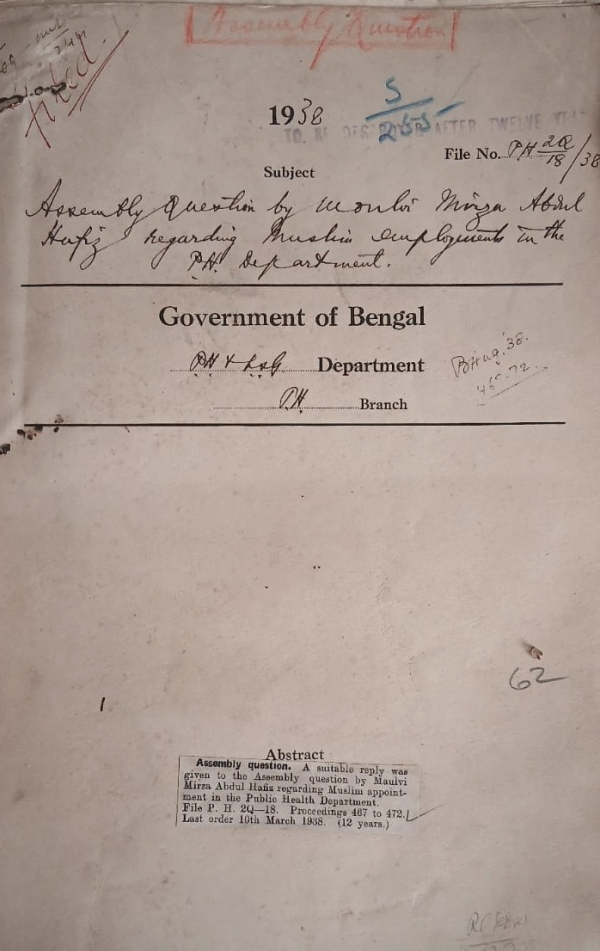 Assembly Question
1938
5
255
TO BE DESTROYED AFTER TWELVE YEARS
File No. PH 2Q/18/38
Subject
Assembly Question by Moulvi Mirza Abdul
Hafiz regarding Muslim employments in the
P.H. Department.
Government of Bengal
PH & LSG Department
P.H. Branch
B Aug '38.
467-72
62
Abstract
Assembly question. A suitable reply was
given to the Assembly question by Maulvi
Mirza Abdul Hafiz regarding Muslim appoint-
ment in the Public Health Department.
File P. H. 2Q—18. Proceedings 467 to 472.
Last order 10th March 1938. (12 years.)